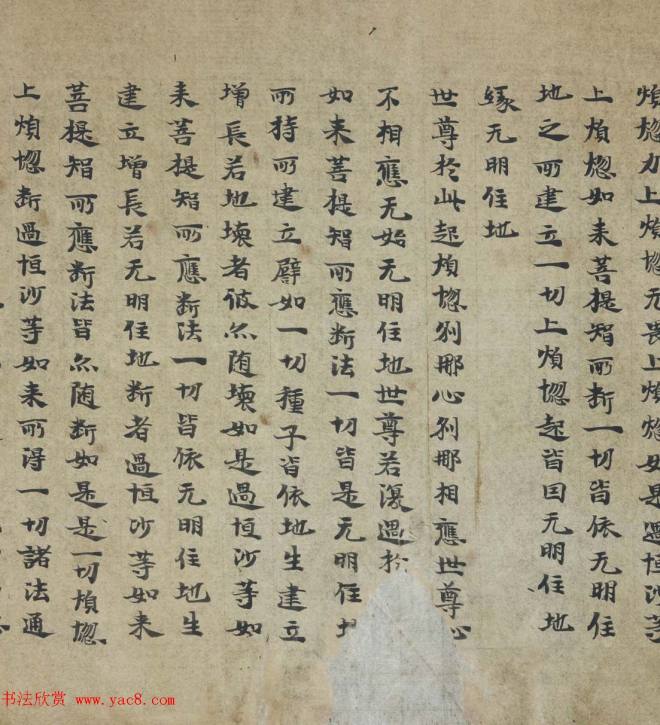 煩惱力上煩惱无畏上煩惱如是過恒沙等
上煩惱如来菩提智所断一切皆依无明住
地之所建立一切上煩惱起皆因无明住地
緣无明住地
世尊於此起煩惱刹那心刹那相應世尊心
不相應无始无明住地世尊若復過於
如来菩提智所應断法一切皆是无明住地
所持所建立譬如一切種子皆依地生建立
增長若地壞者彼亦随壞如是過恒沙等如
来菩提智所應断法一切皆依无明住地生
建立增長若无明住地断者過恒沙等如来
菩提智所應断法皆亦随断如是是一切煩惱
上煩惱断過恒沙等如来所得一切諸法通
书法欣赏 www.yac8.com